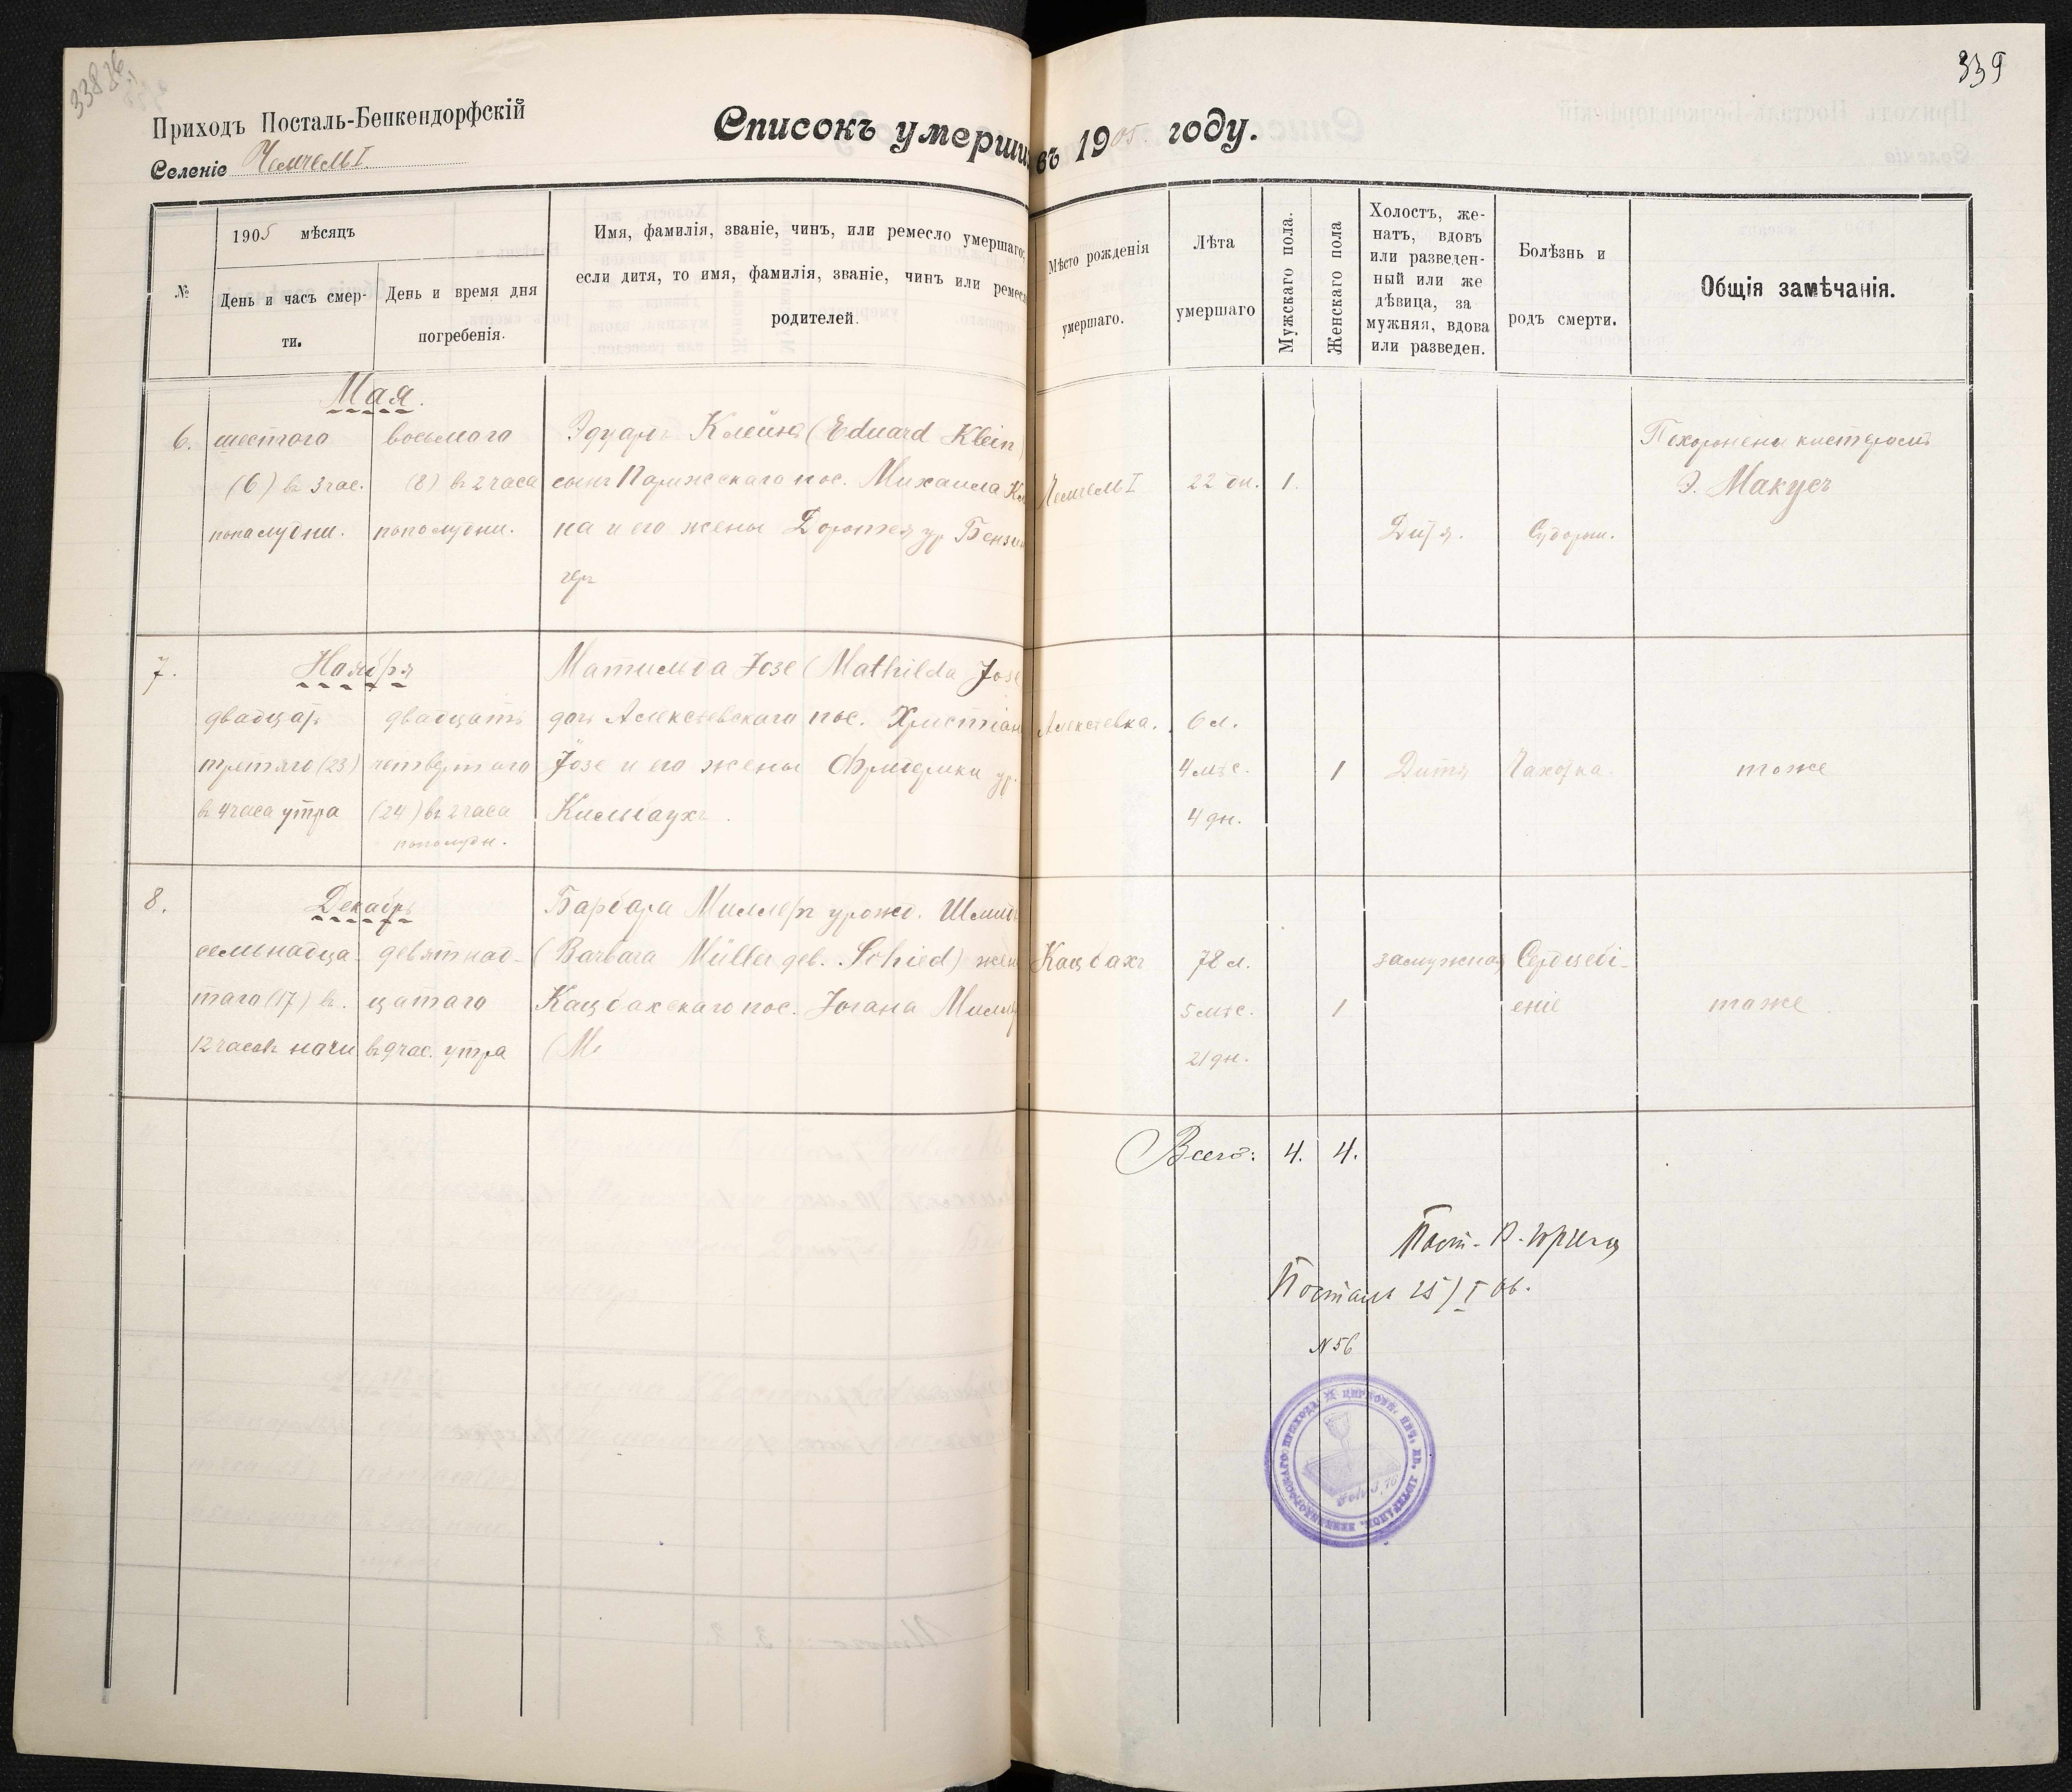 339
Приходъ Посталь-Бенкендорфскій
Селеніе Чемчелы I.
Списокъ умерши въ 1905 году.
№
1905 мѣсяцъ
День и часъ смер-
ти.
День и время дня
погребенія.
Имя, фамилія, званіе, чинъ, или ремесло умершаго,
если дитя, то имя, фамилія, званіе, чинъ или ремес
родителей.
Мѣсто рожденія
умершаго.
Лѣта
умершаго
Мужскаго пола.
Женскаго пола
Холостъ, же-
натъ, вдовъ
или разведен-
ный или же
дѣвица, за
мужняя, вдова
или разведен.
Болѣзнь и
родъ смерти.
Общія замѣчанія.
Мая.
6.
шестого
(6) въ 3 час.
пополудни.
восьмого
(8) въ 2 часа
пополудни.
Эдуардъ Клейнъ (Eduard Klein)
сынъ Парижскаго пос. Михаила Кл
на и его жены Доротея ур Бензин
геръ
Чемчелы I
22 дн.
1.
Дитя.
Судорги.
Похоронены кистеромъ
Э. Макусъ
7.
Ноября
двадцать
третяго (23)
въ 4 часа утра
двадцать
четвертаго
(24) въ 2 часа
пополудн.
Матильда Іозе (Mathilda Jose
дочь Алексѣевскаго пос. Христіан
Іозе и его жены Фридерики ур.
Кильбаухъ.
Алексѣевка.
6 л.
4 мѣс.
4 дн.
1
Дитя
Чахотка.
тоже
8.
Декабрь
семьнадца
таго (17) въ
12 часовъ ночи
девятнад-
цатаго
въ 9 час. утра
Барбара Миллеръ урожд. Шмидъ
(Barbara Müller geb. Schied) жен
Кацбахскаго пос. Іогана Милле
Кацбахъ
78 л.
5 мѣс.
21 дн.
1
замужная
Сердцебі-
еніе
тоже
Всего: 4. 4.
Посталь 25/I 06.
N 56